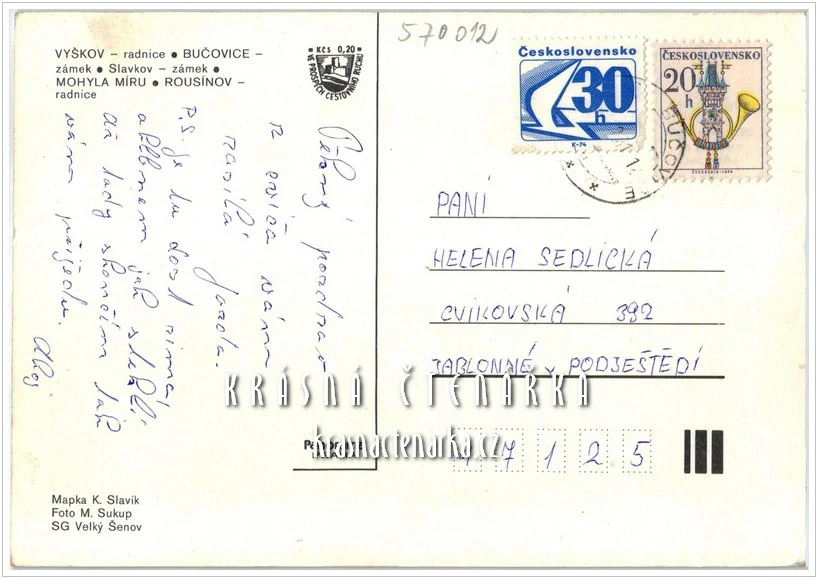 570012
VYŠKOV – radnice ● BUČOVICE –
zámek ● Slavkov – zámek ●
MOHYLA MÍRU ● ROUSÍNOV –
radnice
Kčs 0,20
VE PROSPĚCH CESTOVNÍHO RUCHU
Československo
30
h
K-74
ČESKOSLOVENSKO
20
h
Pěkný pozdrav
z cvič vám
zasílá
Jarda.
P.S. je tu dost zima,
jak
až tady skončím tak
vám přijedu.
PANÍ
HELENA SEDLICKÁ
CVIKOVSKÁ 392
JABLONNÉ v PODJEŠTĚDÍ
KRÁSNÁ ČTENÁŘKA
krasnactenarka.cz
47125
Mapka K. Slavik
Foto M. Sukup
SG Velký Šenov